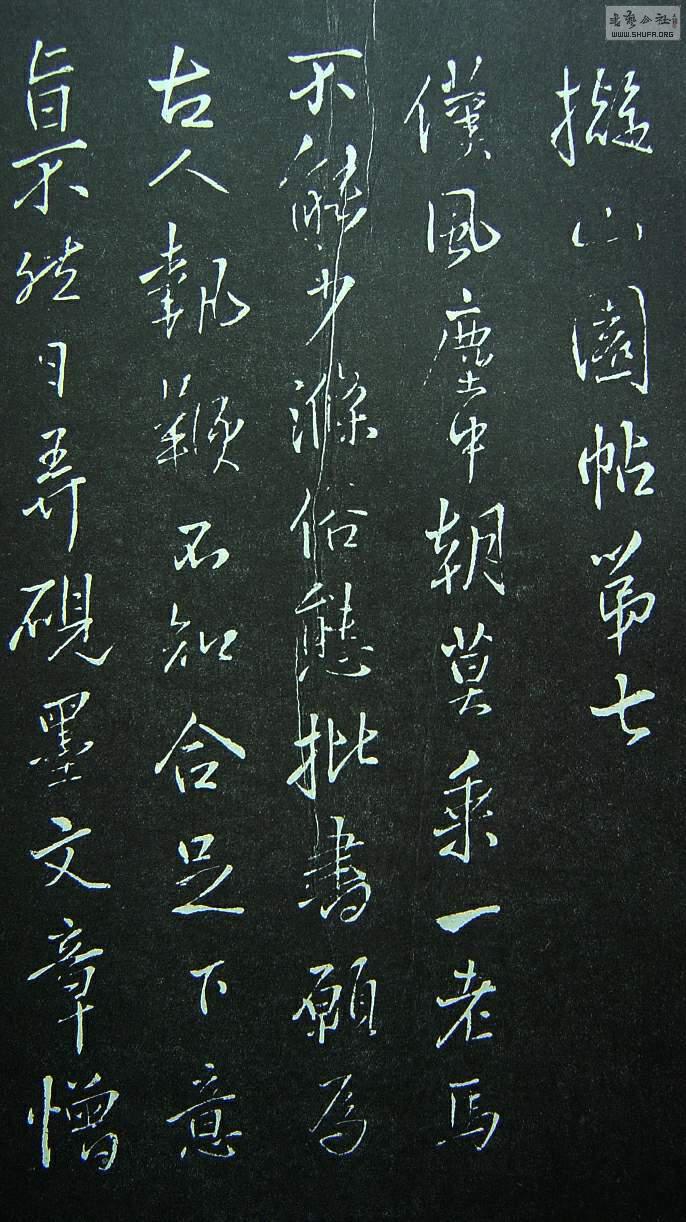 擬山園帖第七
僕風塵中朝莫乘一老馬
不能少滌俗態批書願為
古人執鞭不知合足下意
旨不然日弄硯墨文章憎
書藝公社
WWW.SHUFA.ORG